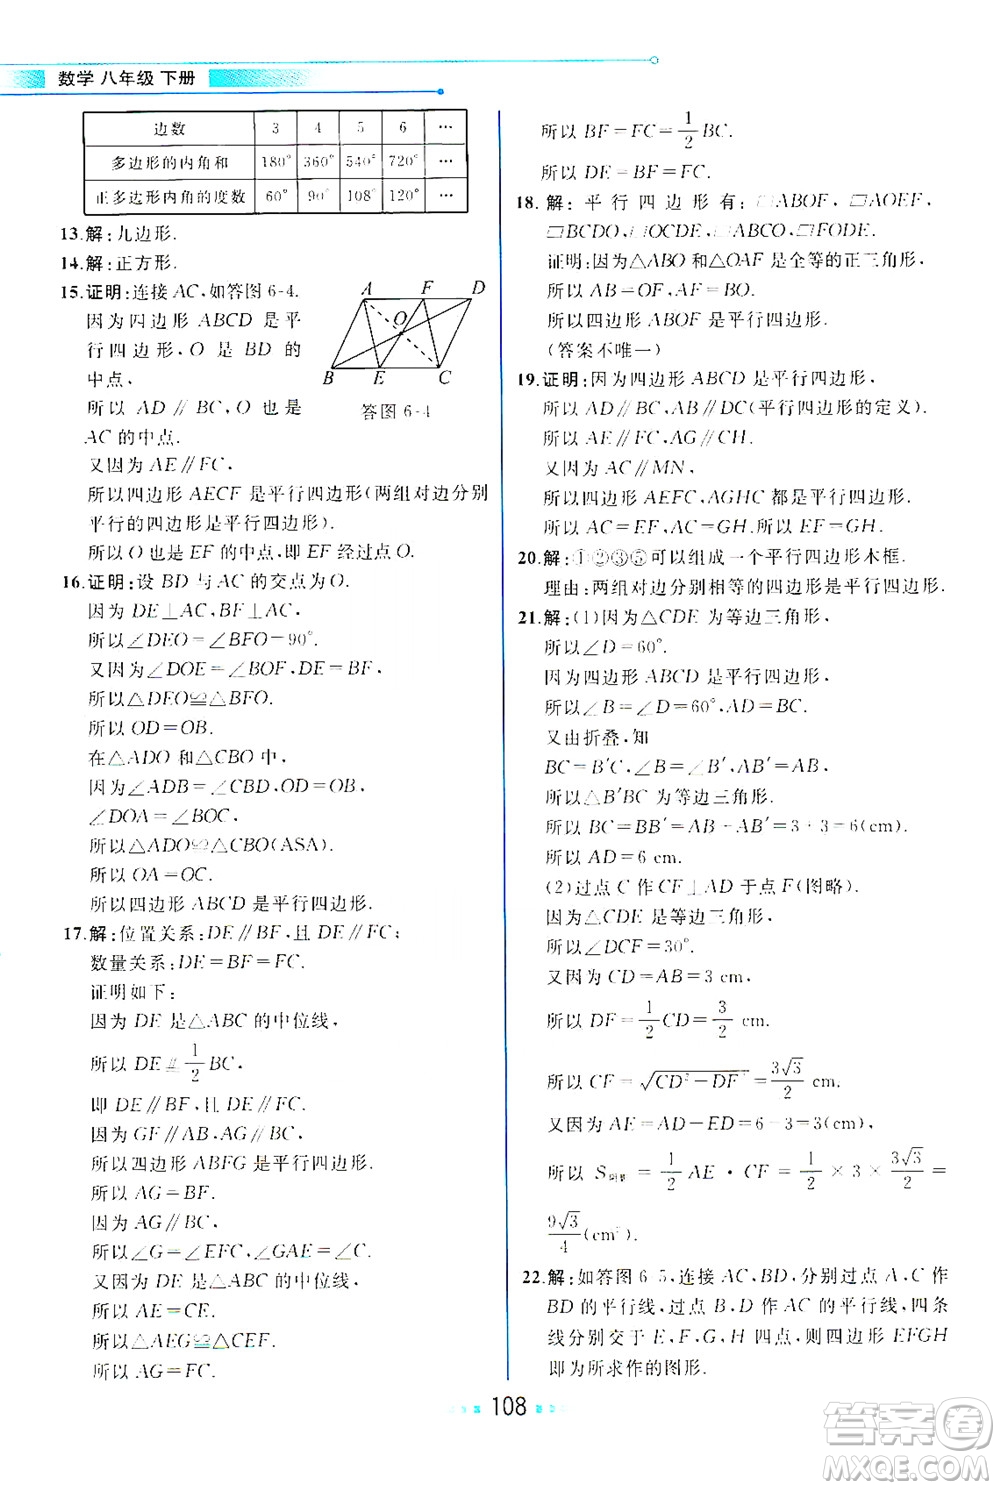 数学 八年级 下册
边数 3 4 5 6 …
多边形的内角和 180° 360° 540° 720° …
正多边形内角的度数 60° 90° 108° 120° …
13.解:九边形.
14.解:正方形.
15.证明:连接 AC,如答图 6-4.
因为四边形 ABCD 是平
行四边形,O 是 BD 的
中点,
所以 AD∥BC,O 也是
AC 的中点.
又因为 AE∥FC,
所以四边形 AECF 是平行四边形(两组对边分别
平行的四边形是平行四边形).
所以 O 也是 EF 的中点,即 EF 经过点 O.
A F D
O
B E C
答图 6-4
16.证明:设 BD 与 AC 的交点为 O.
因为 DE⊥AC,BF⊥AC,
所以∠DEO=∠BFO=90°.
又因为∠DOE=∠BOF,DE=BF,
所以△DEO≌△BFO.
所以 OD=OB.
在△ADO 和△CBO 中,
因为∠ADB=∠CBD,OD=OB,
∠DOA=∠BOC,
所以△ADO≌△CBO(ASA).
所以 OA=OC.
所以四边形 ABCD 是平行四边形.
17.解:位置关系:DE∥BF,且 DE∥FC;
数量关系:DE=BF=FC.
证明如下:
因为 DE 是△ABC 的中位线,
所以 DE∥1/2 BC.
即 DE∥BF,且 DE∥FC.
因为 GF∥AB,AG∥BC,
所以四边形 ABFG 是平行四边形.
所以 AG=BF.
因为 AG∥BC,
所以∠G=∠EFC,∠GAE=∠C.
又因为 DE 是△ABC 的中位线,
所以 AE=CE.
所以△AEG≌△CEF.
所以 AG=FC.
所以 BF=FC=1/2 BC.
所以 DE=BF=FC.
18.解:平行四边形有:▱ABOF,▱AOEF,
▱BCDO,▱OCDE,▱ABCO,▱FODE.
证明:因为△ABO 和△OAF 是全等的正三角形,
所以 AB=OF,AF=BO.
所以四边形 ABOF 是平行四边形.
(答案不唯一)
19.证明:因为四边形 ABCD 是平行四边形,
所以 AD∥BC,AB∥DC(平行四边形的定义).
所以 AE∥FC,AG∥CH.
又因为 AC∥MN,
所以四边形 AEFC,AGHC 都是平行四边形.
所以 AC=EF,AC=GH.所以 EF=GH.
20.解:①②③⑤可以组成一个平行四边形木框.
理由:两组对边分别相等的四边形是平行四边形.
21.解:(1)因为△CDE 为等边三角形,
所以∠D=60°.
因为四边形 ABCD 是平行四边形,
所以∠B=∠D=60°,AD=BC.
又由折叠,知
BC=B′C,∠B=∠B′,AB′=AB,
所以△B′BC 为等边三角形.
所以 BC=BB′=AB+AB′=3+3=6(cm).
所以 AD=6 cm.
(2)过点 C 作 CF⊥AD 于点 F(图略).
因为△CDE 是等边三角形,
所以∠DCF=30°.
又因为 CD=AB=3 cm,
所以 DF=1/2 CD=3/2 cm.
所以 CF=√(CD²-DF²)=3√3/2 cm.
又因为 AE=AD-ED=6-3=3(cm),
所以 S阴影=1/2 AE·CF=1/2×3×3√3/2=
9√3/4(cm²).
22.解:如答图 6-5,连接 AC,BD,分别过点 A,C 作
BD 的平行线,过点 B,D 作 AC 的平行线,四条
线分别交于 E,F,G,H 四点,则四边形 EFGH
即为所求作的图形.
108
答案圈
MXQE.COM